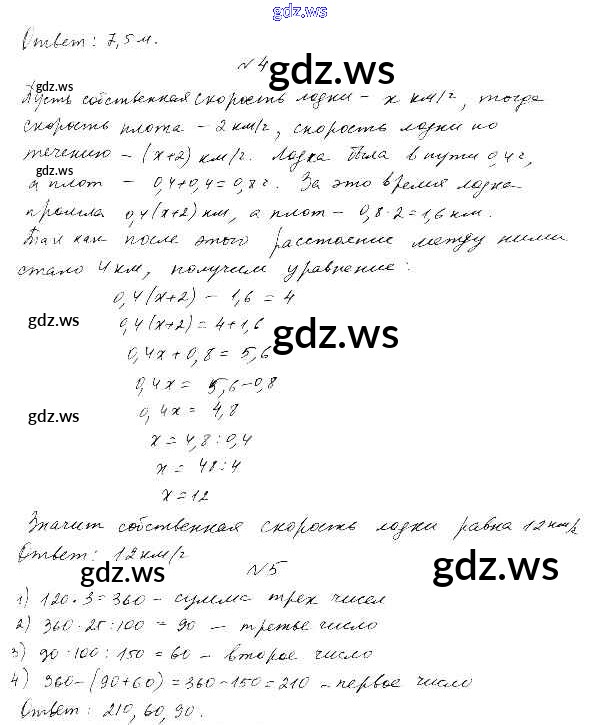 gdz.ws
Ответ: 7,5 м.
№ 4
gdz.ws
gdz.ws
Пусть собственная скорость лодки – x км/г, тогда
скорость плота – 2 км/г, скорость лодки по
течению – (x+2) км/г. Лодка была в пути 0,4 г,
gdz.ws
а плот – 0,4+0,4=0,8 г. За это время лодка
прошла 0,4(x+2) км, а плот – 0,8·2=1,6 км.
Так как после этого расстояние между ними
стало 4 км, получим уравнение:
0,4(x+2) – 1,6 = 4
gdz.ws
0,4(x+2) = 4+1,6
gdz.ws
0,4x + 0,8 = 5,6
0,4x = 5,6–0,8
gdz.ws
0,4x = 4,8
x = 4,8 : 0,4
x = 48:4
x = 12
Значит собственная скорость лодки равна 12 км/г
Ответ: 12 км/г
gdz.ws
gdz.ws
№ 5
1) 120·3=360 – сумма трех чисел
2) 360·25:100 = 90 – третье число
3) 90·100:150=60 – второе число
4) 360–(90+60)=360–150=210 – первое число
Ответ: 210, 60, 90.